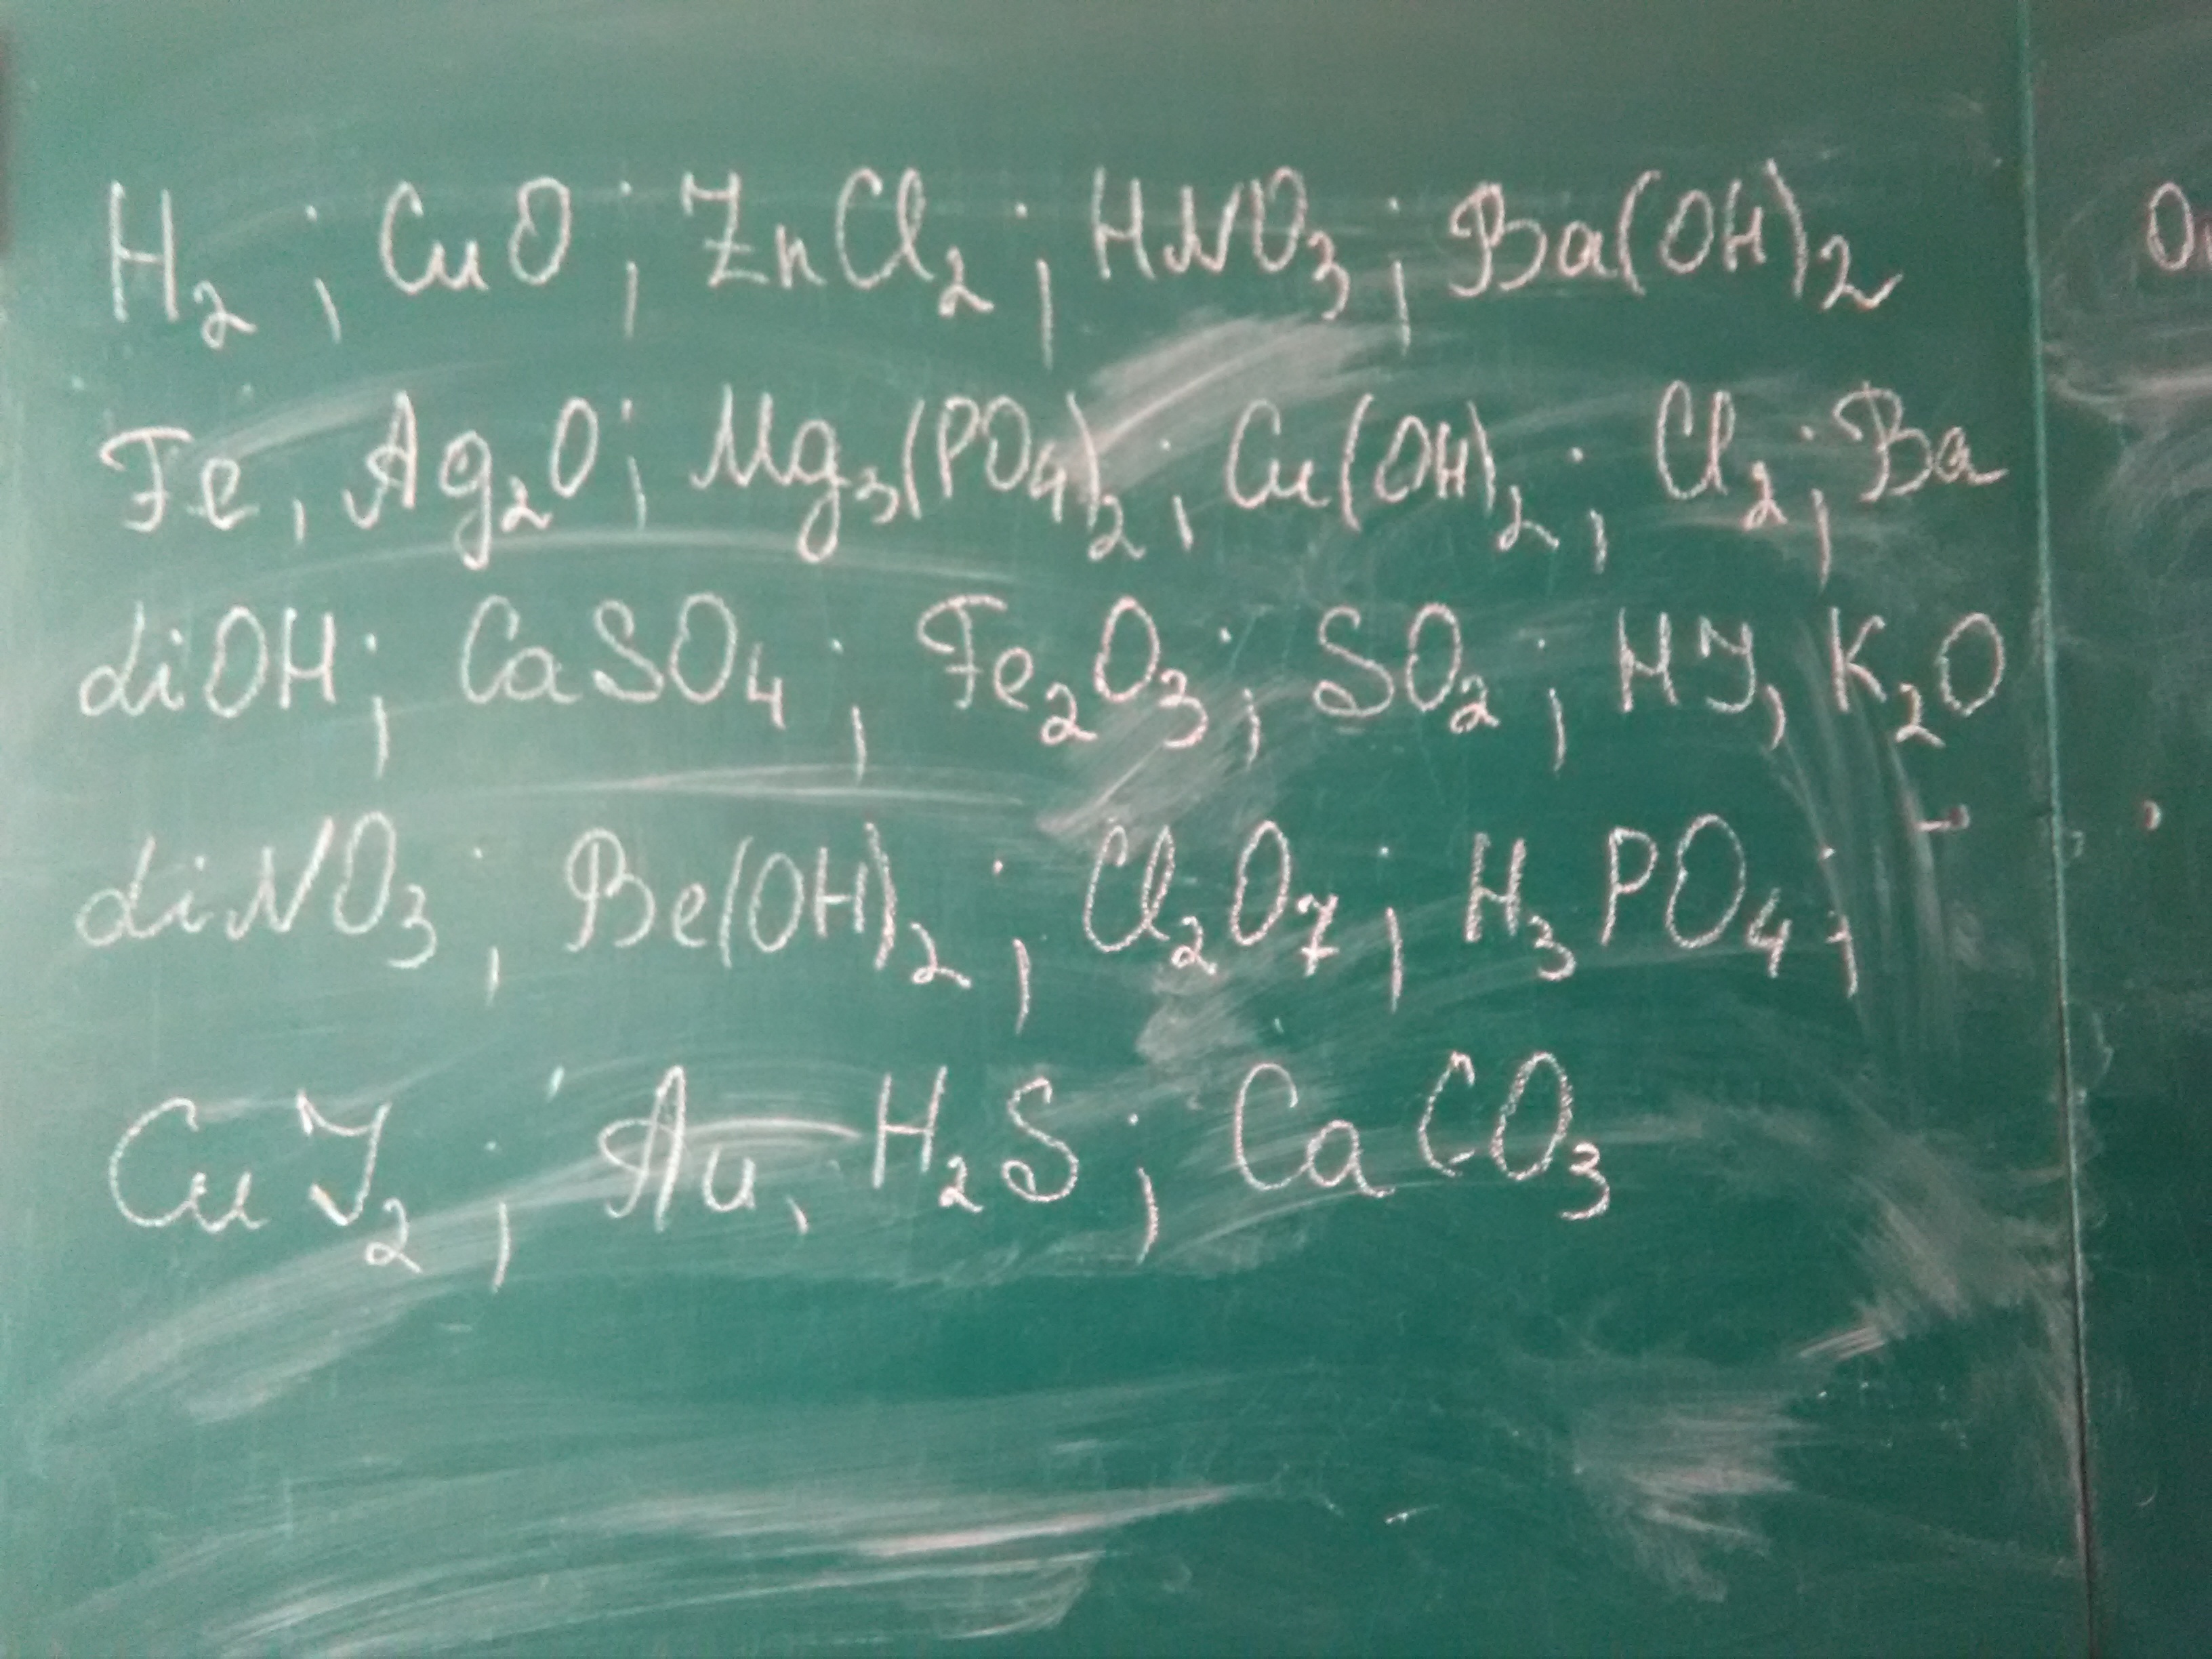 H₂; CuO; ZnCl₂; HNO₃; Ba(OH)₂
Fe, Ag₂O; Mg₃(PO₄)₂; Cu(OH)₂; Cl₂; Ba
LiOH; CaSO₄; Fe₂O₃; SO₂; HJ, K₂O
LiNO₃; Be(OH)₂; Cl₂O₇; H₃PO₄;
CuJ₂; Au, H₂S; CaCO₃